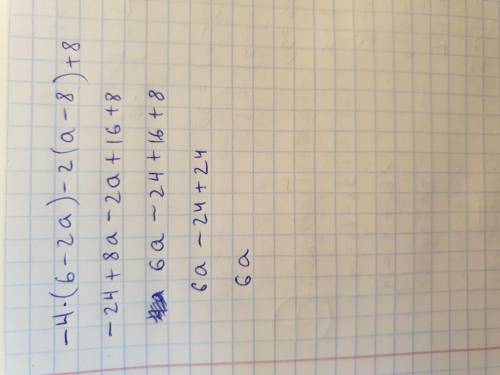 -4·(6-2a)-2(a-8)+8
-24+8a-2a+16+8
6a-24+16+8
6a-24+24
6a